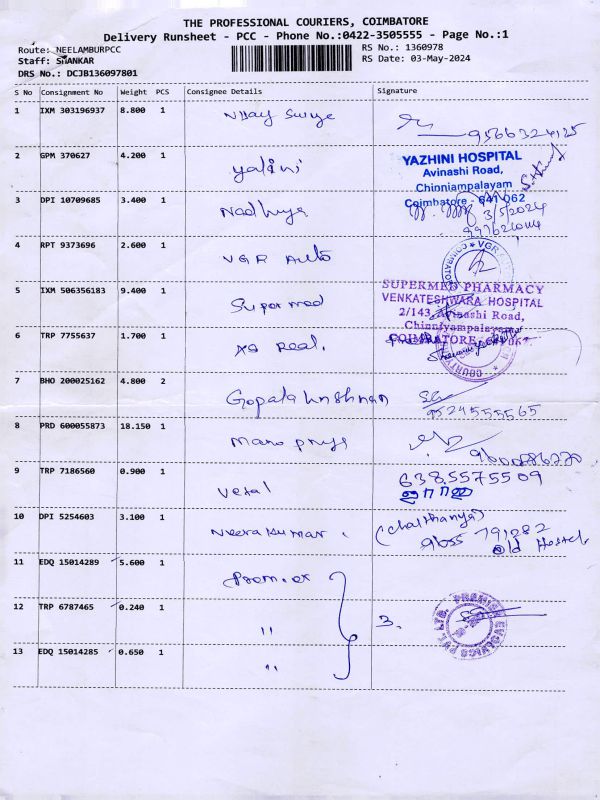 THE PROFESSIONAL COURIERS, COIMBATORE
Delivery Runsheet - PCC - Phone No.:0422-3505555 - Page No.:1
Route: NEELAMBURPCC
RS No.: 1360978
Staff: SHANKAR
RS Date: 03-May-2024
DRS No.: DCJB136097801
S No Consignment No Weight PCS Consignee Details Signature
1 IXM 303196937 8.800 1
9566324125
2 GPM 370627 4.200 1 yalini
YAZHINI HOSPITAL
Avinashi Road,
Chinniampalayam
Coimbatore - 641 062
3 DPI 10709685 3.400 1
3/5/2024
4 RPT 9373696 2.600 1 VGR Auto
5 IXM 506356183 9.400 1 Supermed
SUPERMED PHARMACY
VENKATESHWARA HOSPITAL
2/143, Avinashi Road,
Chinniyampalayam
COIMBATORE
6 TRP 7755637 1.700 1 Real.
7 BHO 200025162 4.800 2 Gopala krishnan
9524555565
8 PRD 600055873 18.150 1 Mano priya
9 TRP 7186560 0.900 1
6385575509
10 DPI 5254603 3.100 1 Neerakumar
(Chaithanya)
9655 791282
old Hostel
11 EDQ 15014289 5.600 1
12 TRP 6787465 0.240 1 "
3.
13 EDQ 15014285 0.650 1 "